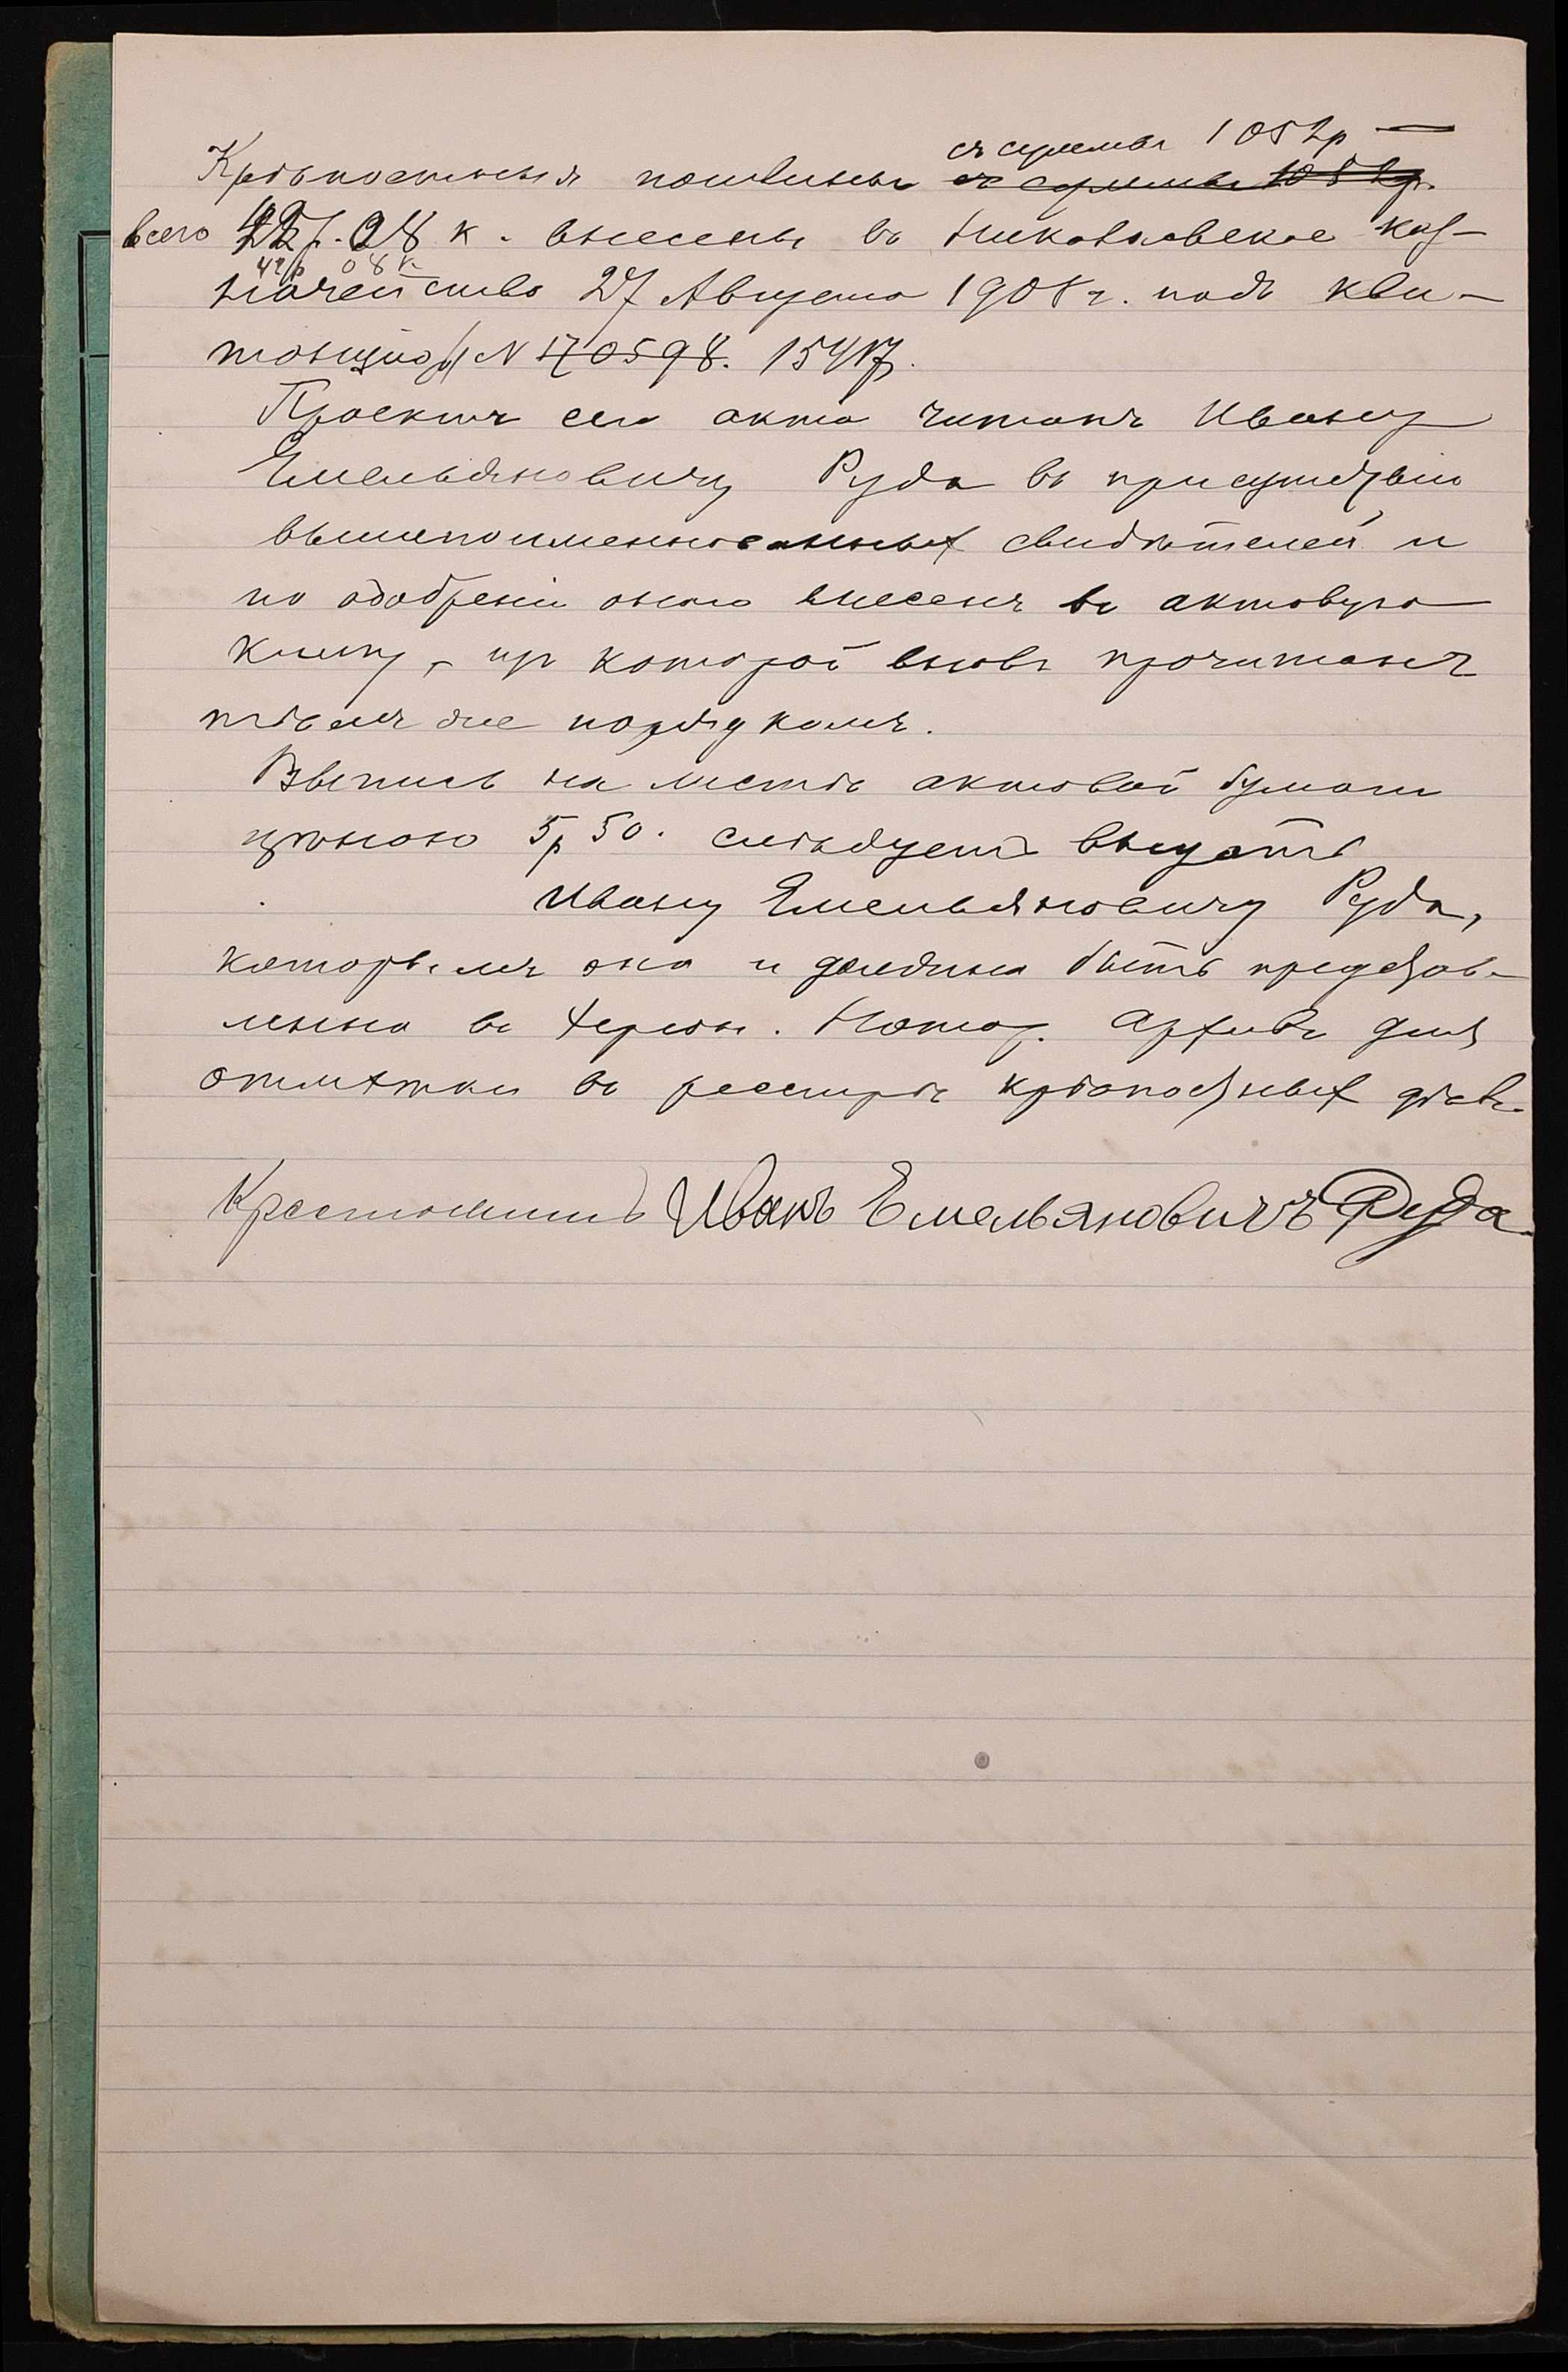 съ суммы 1052р —
Крѣпостныя пошлины съ суммы 1052р.
всего 42р. 08 к. внесены въ Николаевское каз-
42р 08 к.
начейство 27 Августа 1908 г. подъ кви-
танціою N 170598. 15417.
Проектъ сего акта читанъ Ивану
Емельяновичу Руда въ присутствіи
вышепоименнованныхъ свидѣтелей и
по одобреніи онаго внесенъ въ актовую
книгу, изъ которой вновь прочитанъ
тѣмъ же порядкомъ.
Выпись на листѣ актовой бумаги
цѣною 5р 50. слѣдуетъ выдать
Ивану Емельяновичу Руда,
которымъ она и должна быть представ-
лена въ Херсон. Нотар. Архивъ для
отмѣтки въ реестрѣ крѣпостныхъ дѣлъ.
Крестьянинъ Иванъ Емельяновичъ Руда.